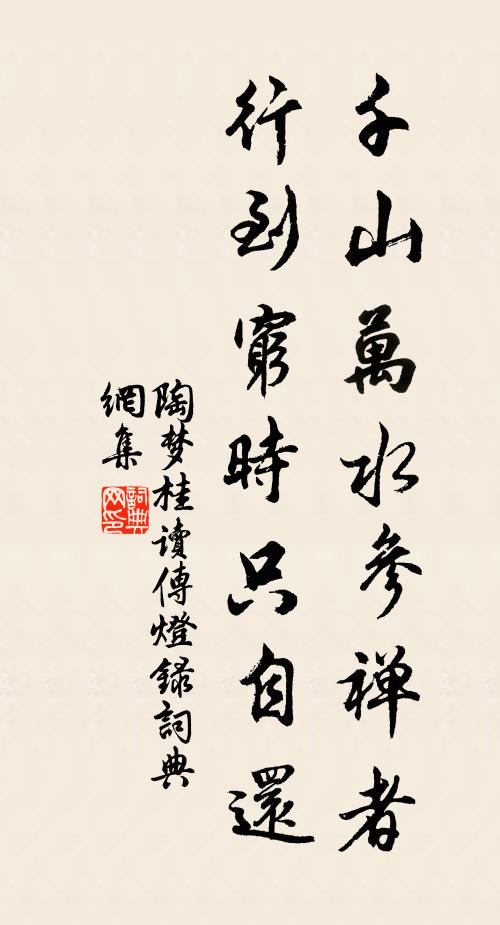 千山萬水參禅者
行到窮時只自還
陶梦桂讀傳燈録詞典
網集
詞典網印